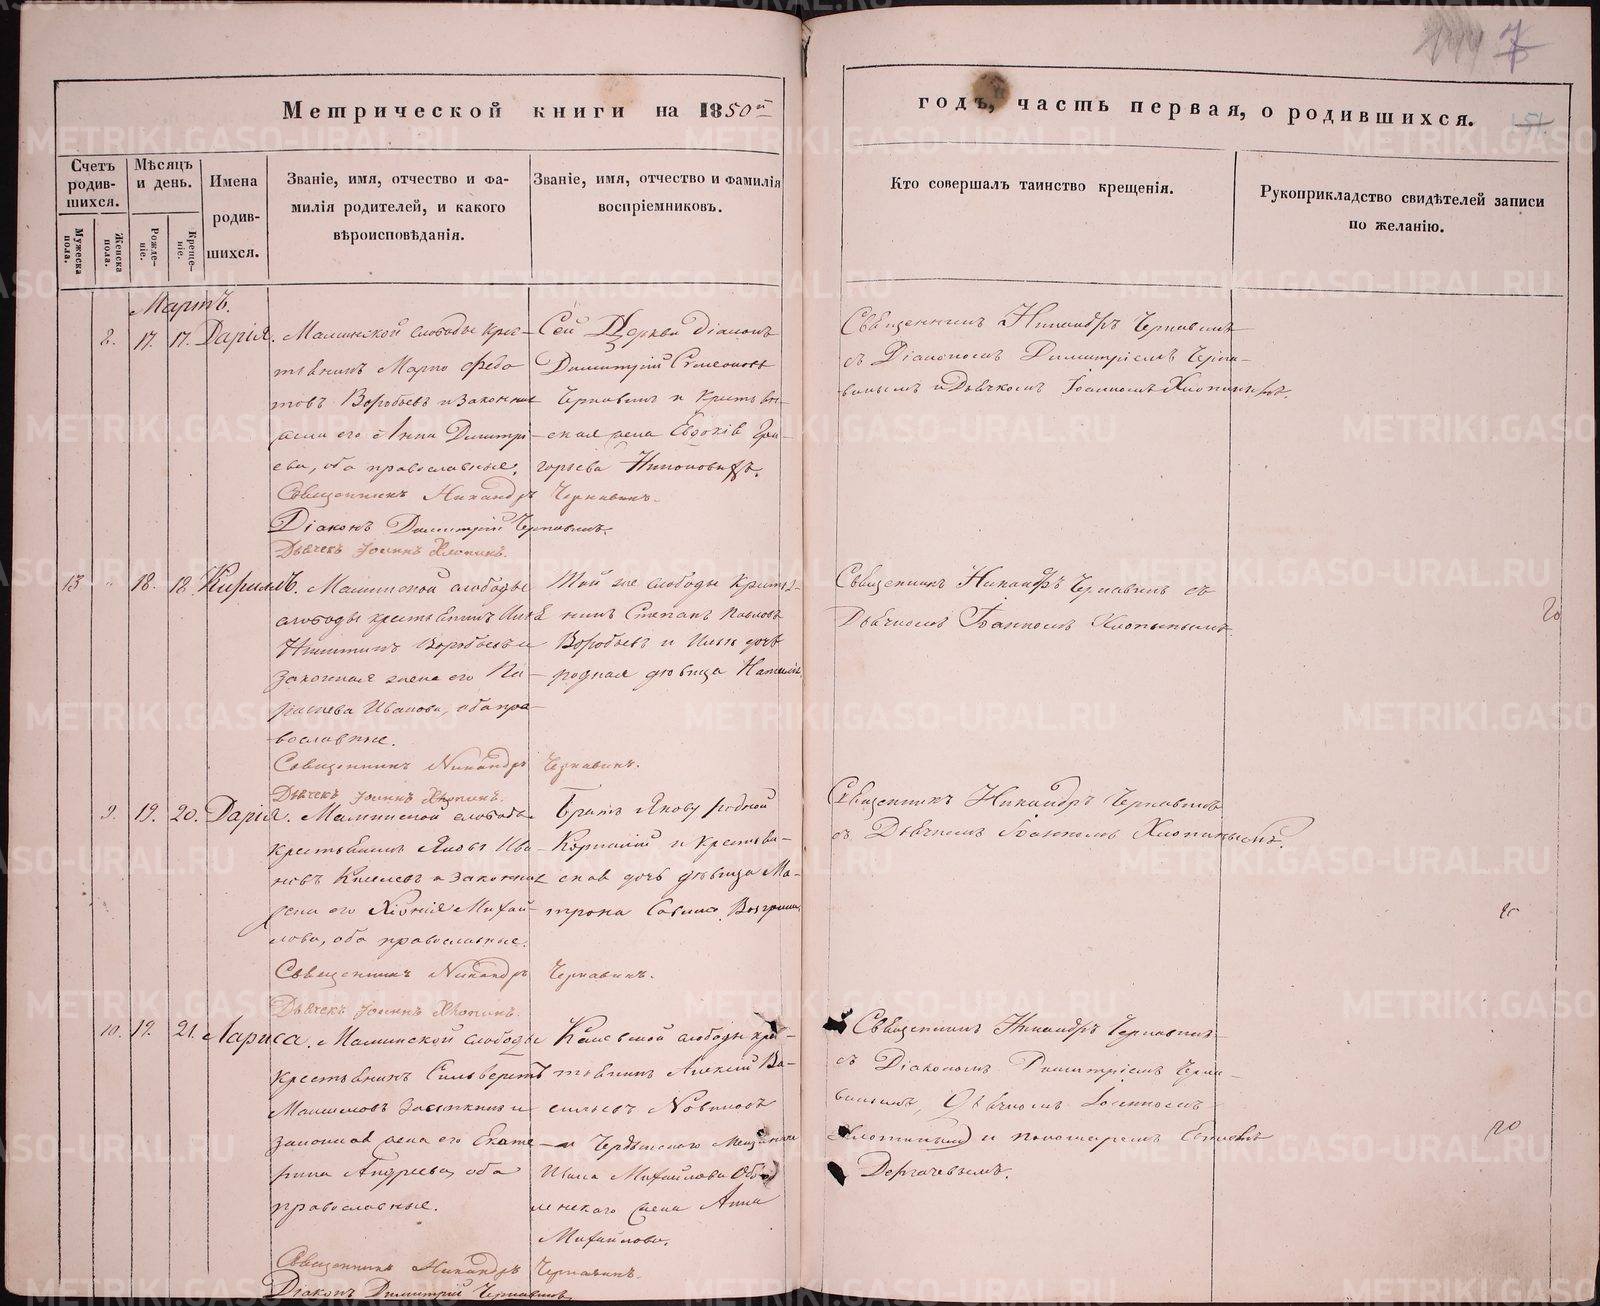 Метрической книги на 1850й
годъ, часть первая, о родившихся.
Счетъ родив-шихся.
Мѣсяцъ и день.
Имена родив-шихся.
Званіе, имя, отчество и фа-
милія родителей, и какого
вѣроисповѣданія.
Званіе, имя, отчество и фамилія
воспріемниковъ.
Кто совершалъ таинство крещенія.
Рукоприкладство свидѣтелей записи
по желанію.
Мужеска пола.
Женска пола.
Рожде-ніе.
Креще-ніе.
Мартъ.
2. 17. 17. Дарія.
Маминской слободы крес-
тьянинъ Марко Федо
товъ Воробьевъ и законная
жена его Анна Димитрі-
ева, оба православные.
Священникъ Никандръ Чернавинъ.
Діаконъ Димитрій Чернавинъ.
Дьячекъ Іоаннъ Хлопинъ.
Сей Церкви діаконъ
Димитрій Симеоновъ
Чернавинъ и крестьян-
ская жена Евдокія Гри-
горьева
Священникъ Никандръ Чернавинъ
съ Діакономъ Димитріемъ Черна-
винымъ и Дьячкомъ Іоанномъ Хлопинымъ.
13 " 18. 18. Кириллъ.
Маминской слободы
слободы крестьянинъ
Никитинъ Воробьевъ и
законная жена его Па-
раскева Иванова, оба пра-
вославные.
Священникъ Никандръ Чернавинъ.
Дьячекъ Іоаннъ Хлопинъ.
Той же слободы крестья-
нинъ Степанъ Павловъ
Воробьевъ и дочь
родная дѣвица
Священникъ Никандръ Чернавинъ съ
Дьячкомъ Іоанномъ Хлопинымъ.
20
9. 19. 20. Дарія.
Маминской слободы
крестьянинъ Яковъ Ива-
новъ Киселевъ и законная
жена его Хіонія Михай-
лова, оба православные.
Священникъ Никандръ Чернавинъ.
Дьячекъ Іоаннъ Хлопинъ.
Братъ Якову родной
Корнилій и крестьян-
ская дочь дѣвица Ма-
трона
Священникъ Никандръ Чернавинъ
съ Дьячкомъ Іоанномъ Хлопинымъ.
10. 19. 21. Лариса.
Маминской слободы
крестьянинъ Сильверстъ
и
законная жена его Екате-
рина Андреева, оба
православные.
Священникъ Никандръ Чернавинъ.
Діаконъ Димитрій Чернавинъ.
слободы кре-
стьянинъ Алексій Ва-
сильевъ Новиковъ
и Чердынского Мещанина
Ивана Михайлова Обо
ленского жена Анна
Михайлова.
Священникъ Никандръ Чернавинъ
съ Діакономъ Димитріемъ Черна-
винымъ, Дьячкомъ Іоанномъ
Хлопинымъ и пономаремъ
Дергачевымъ.
20
7
METRIKI.GASO-URAL.RU